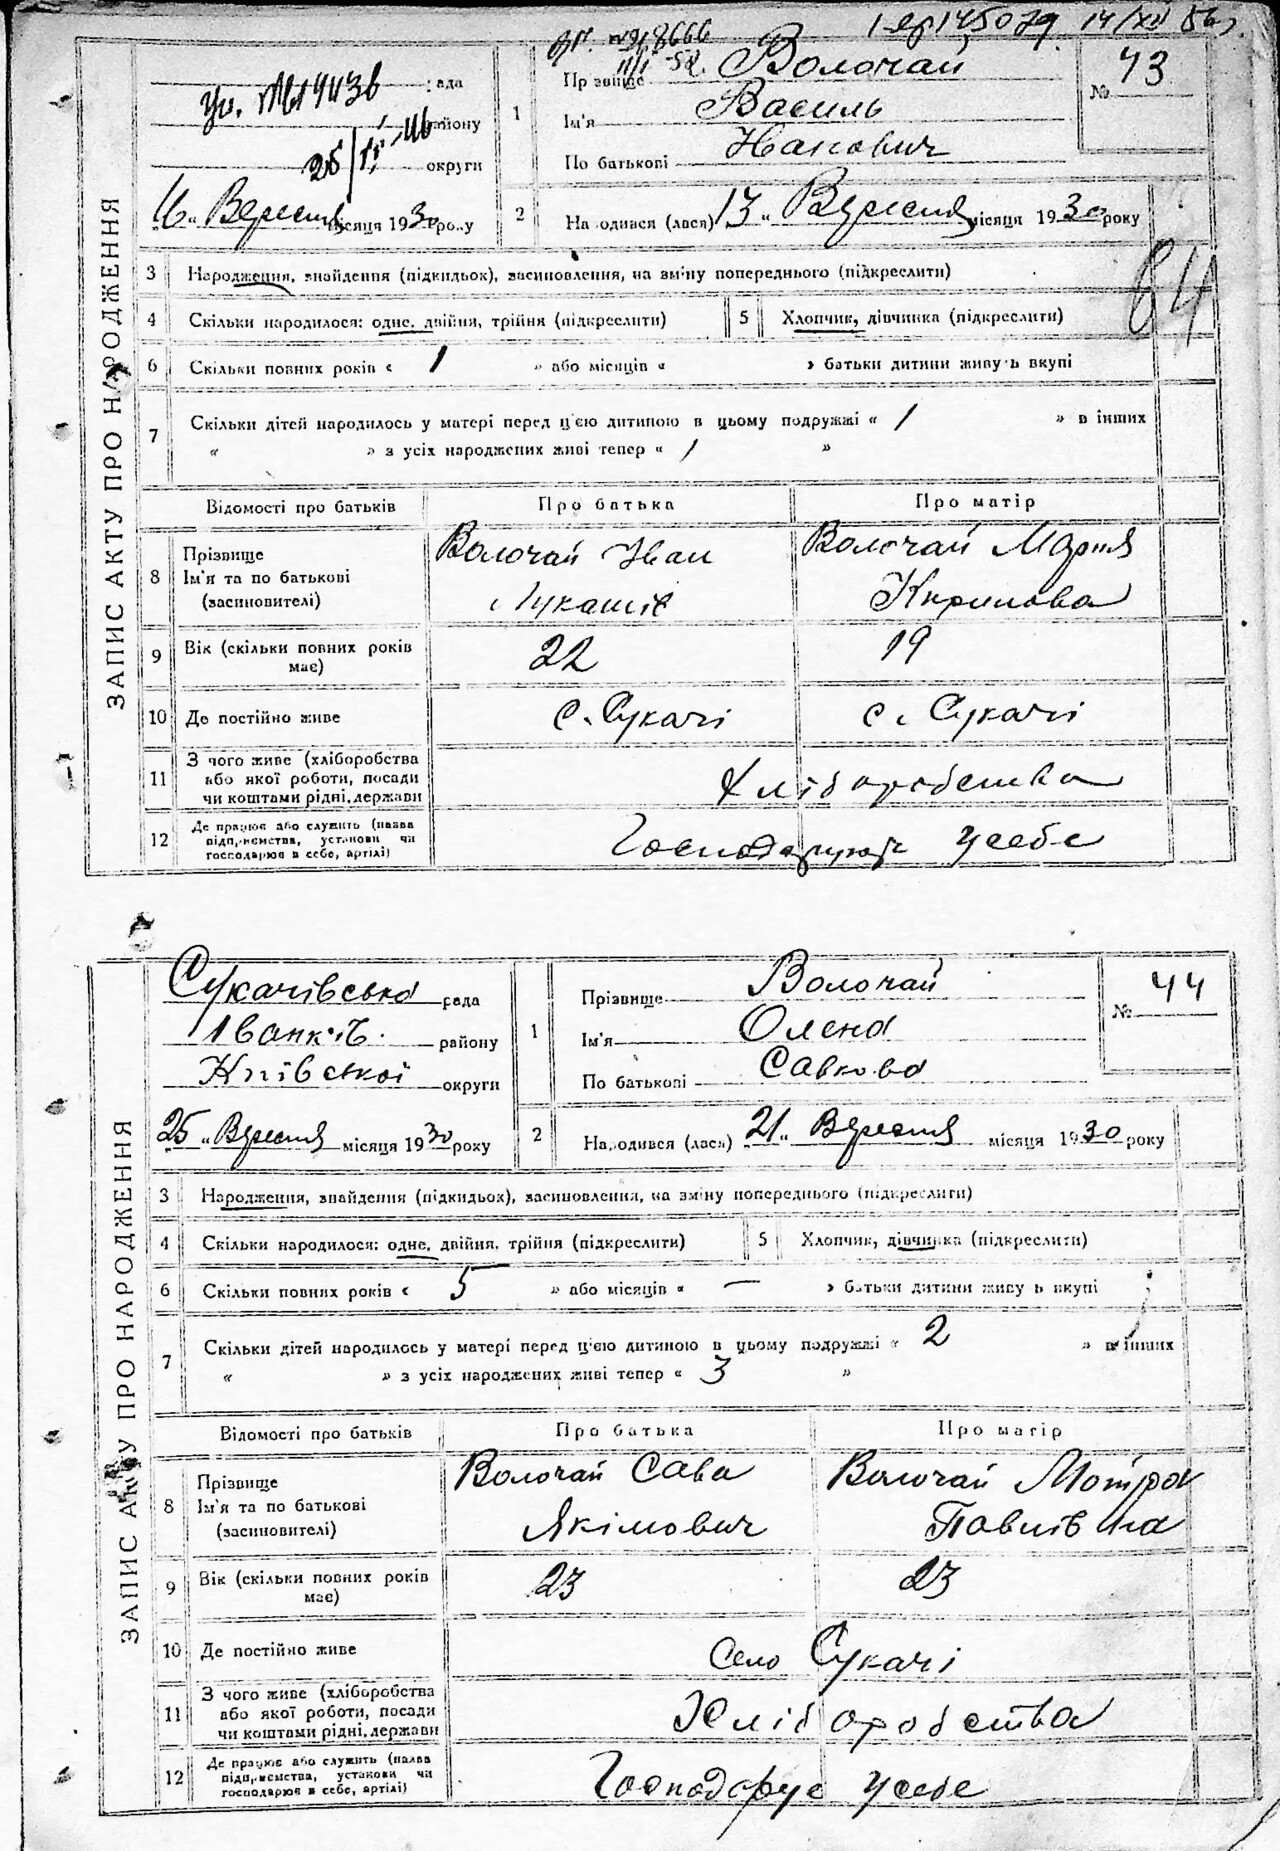 14/XII 56
ЗАПИС АКТУ ПРО НАРОДЖЕННЯ
рада
району
округи
16 „ Вересня місяця 1930 року
1
Прізвище Волочай
Ім'я Василь
По батькові Иванович
№ 43
2
Народився (лася) 13 „ Вересня місяця 1930 року
64
3 Народження, знайдення (підкидьок), засиновлення, на зміну попереднього (підкреслити)
4 Скільки народилося: одне, двійня, трійня (підкреслити)
5 Хлопчик, дівчинка (підкреслити)
6 Скільки повних років « 1 » або місяців « » батьки дитини живуть вкупі
7 Скільки дітей народилось у матері перед ц'єю дитиною в цьому подружжі « 1 » в інших
« » з усіх народжених живі тепер « 1 »
Відомості про батьків Про батька Про матір
8 Прізвище Волочай Іван Волочай Мария
Ім'я та по батькові Лукашів Кирилова
(засиновителі)
9 Вік (скільки повних років має) 22 19
10 Де постійно живе с. Сукачі с. Сукачі
11 З чого живе (хліборобства
або якої роботи, посади Хліборобства
чи коштами рідні, держави
12 Де працює або служить (назва
підприємства, установи чи Господарують усебе
господарює в себе, артілі)
ЗАПИС АКТУ ПРО НАРОДЖЕННЯ
Сукачівська рада
Іванків. району
Київської округи
25 „ Вересня місяця 1930 року
1
Прізвище Волочай
Ім'я Олена
По батькові Савкова
№ 44
2
Народився (лася) 21 „ Вересня місяця 1930 року
3 Народження, знайдення (підкидьок), засиновлення, на зміну попереднього (підкреслити)
4 Скільки народилося: одне, двійня, трійня (підкреслити)
5 Хлопчик, дівчинка (підкреслити)
6 Скільки повних років « 5 » або місяців « — » батьки дитини живуть вкупі
7 Скільки дітей народилось у матері перед ц'єю дитиною в цьому подружжі « 2 » в інших
« » з усіх народжених живі тепер « 3 »
Відомості про батьків Про батька Про матір
8 Прізвище Волочай Сава Волочай Мотря
Ім'я та по батькові Якімович Павлівна
(засиновителі)
9 Вік (скільки повних років має) 23 23
10 Де постійно живе Село Сукачі
11 З чого живе (хліборобства
або якої роботи, посади Хліборобства
чи коштами рідні, держави
12 Де працює або служить (назва
підприємства, установи чи Господарує усебе
господарює в себе, артілі)